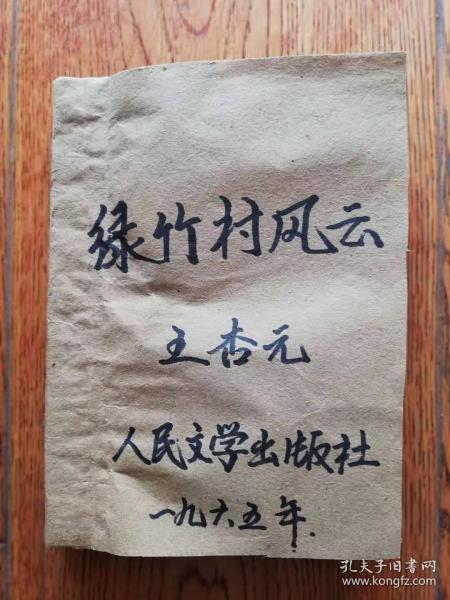 绿竹村风云
王杏元
人民文学出版社
一九六五年.
孔夫子旧书网
www.kongfz.com